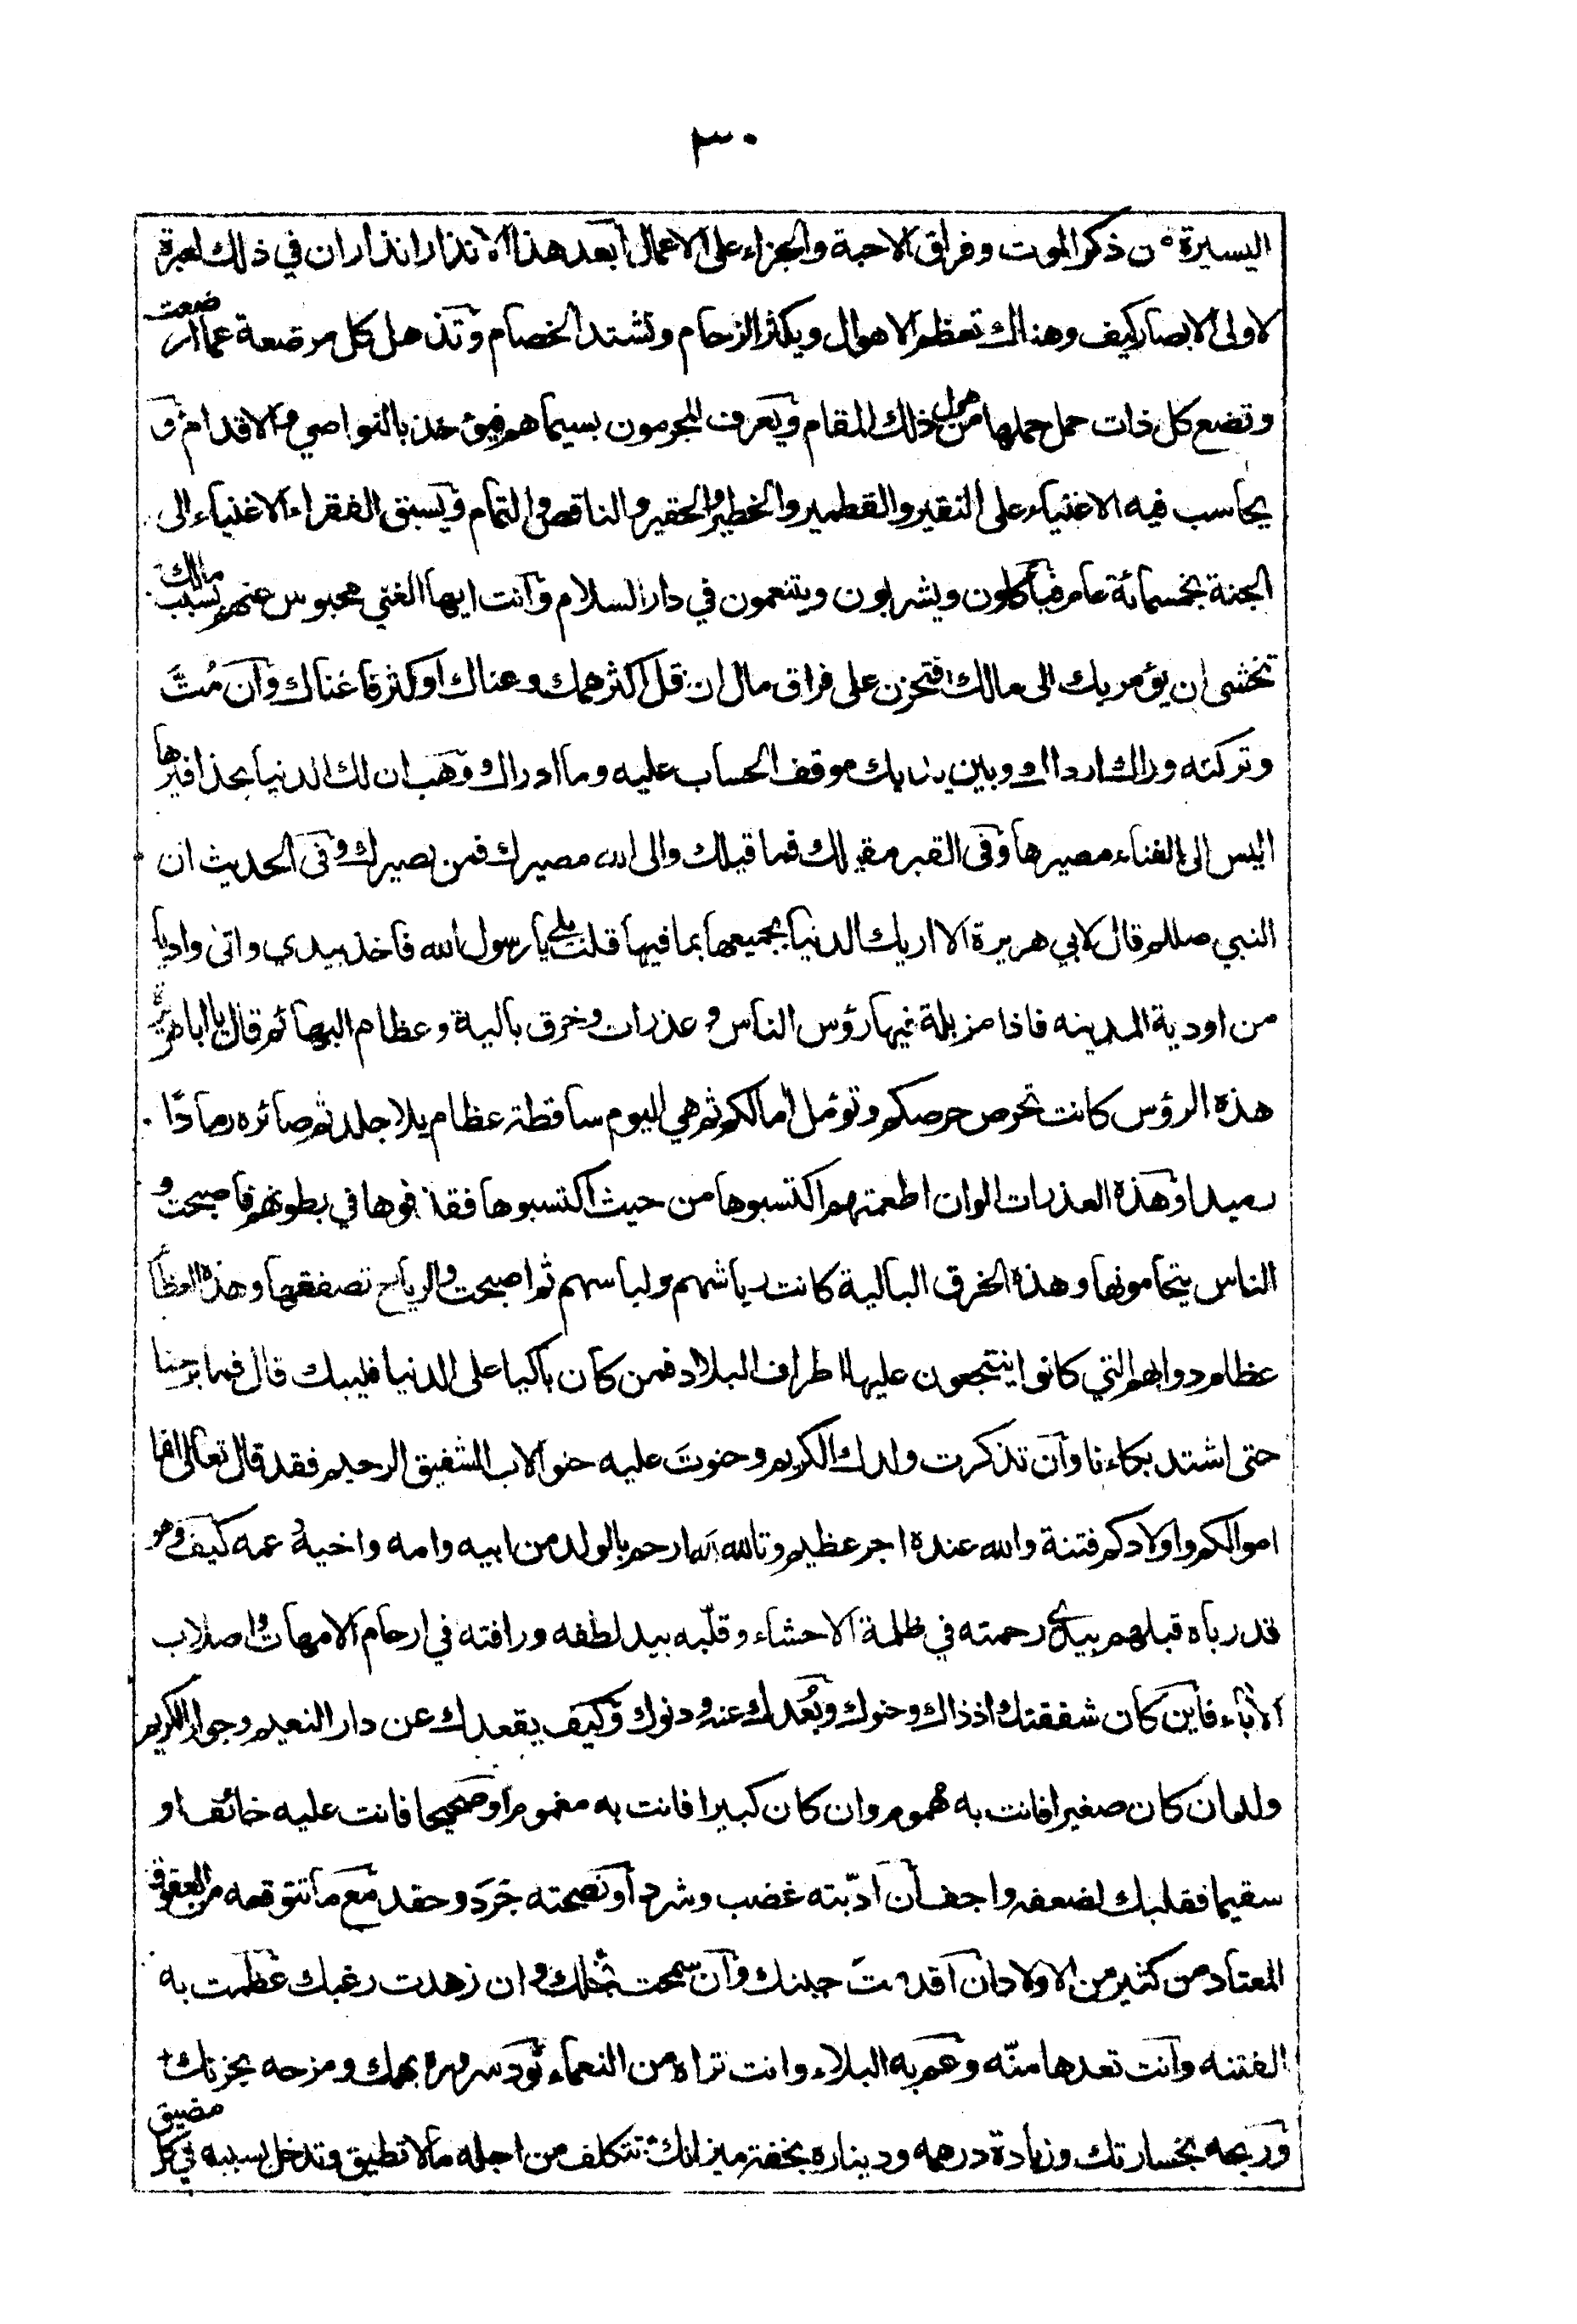 ٣٠
اليسيرة من ذكر الموت وفراق الاحبة والجزاء على الاعمال ابعد هذا الانذار انذار ان في ذلك لعبرة
لاولى الابصار كيف وهنالك تعظم الاهوال ويكثر الزحام وتشتد الخصام وتذهل كل مرضعة عما ارضعت
وتضع كل ذات حمل حملها من هول ذلك المقام ويعرف المجرمون بسيماهم فيؤخذ بالنواصي والاقدام و
يحاسب فيه الاغنياء على النقير والقطمير والخطير والحقير والناقص والتمام ويسبق الفقراء الاغنياء الى
الجنة بخمسمائة عام فيأكلون ويشربون ويتنعمون في دار السلام وانت ايها الغني محبوس عنهم بسبب مالك
تخشى ان يؤمر بك الى مالك افتحزن على فراق مال ان قل اكثر همك وعناك او كثر فاغناك وان مُتَّ
وتركته وراك ارداك وبين يديك موقف الحساب عليه وما ادراك وهب ان لك الدنيا بحذافيرها
اليس الى الفناء مصيرها وفى القبر مقيلك فما قيلك والى الله مصيرك فمن نصيرك وفى الحديث ان
النبي صللم قال لابي هريرة الا اريك الدنيا بجميعها بما فيها قلت بلى يا رسول الله فاخذ بيدي واتى واديا
من اودية المدينه فاذا مزبلة فيها رؤس الناس وعذرات وخرق بالية وعظام البهائم ثم قال يا ابا هريرة
هذه الرؤس كانت تحرص حرصكم وتؤمل امالكم ثم هي اليوم ساقطة عظام بلا جلد ثم صائره رمادًا
رميدا وهذه العذرات الوان اطعمتهم اكتسبوها من حيث اكتسبوها فقذفوها في بطونهم فاصبحت و
الناس يتحامونها وهذه الخرق البالية كانت رياشهم ولباسهم ثم اصبحت والرياح تصفقها وهذه العظام
عظام دوابهم التي كانوا ينتجعون عليها اطراف البلاد فمن كان باكيا على الدنيا فليبك قال فما برحنا
حتى اشتد بكاءنا وان تذكرت ولدك الكريم وحنوتَ عليه حنو الاب الشفيق الرحيم فقد قال تعالى انما
اموالكم واولادكم فتنة والله عنده اجر عظيم وتالله انه ارحم بالولد من ابيه وامه واخيه وعمه كيف وهو
قد رباه قبلهم بيدي رحمته في ظلمة الاحشاء وقلّبه بيد لطفه ورافته في ارحام الامهات واصلاب
الاباء فاين كان شفقتك اذ ذاك وحنوك وبُعدك عنه ودنوك وكيف يقعدك عن دار النعيم وجوار الكريم
ولد ان كان صغيرا فانت به مهموم وان كان كبيرا فانت به مغموم او صحيحا فانت عليه خائف او
سقيما فقلبك لضعفه واجف ان ادّبته غضب وشرد او نصحته حَرَدَ وحقد مع ما تتوقعه من العقوق
المعتاد من كثير من الاولاد ان اقدمتَ جبنك وان سمحت بخلك وان زهدت رغبك عظمت به
الفتنه وانت تعدها منّه وعم به البلاء وانت تراه من النعماء تود سروره بهمك ومزحه بحزنك
وربحه بخسارتك وزيادة درهمه وديناره بخفة ميزانك تتكلف من اجله مالا تطيق وتدخل بسببه في كل مضيق